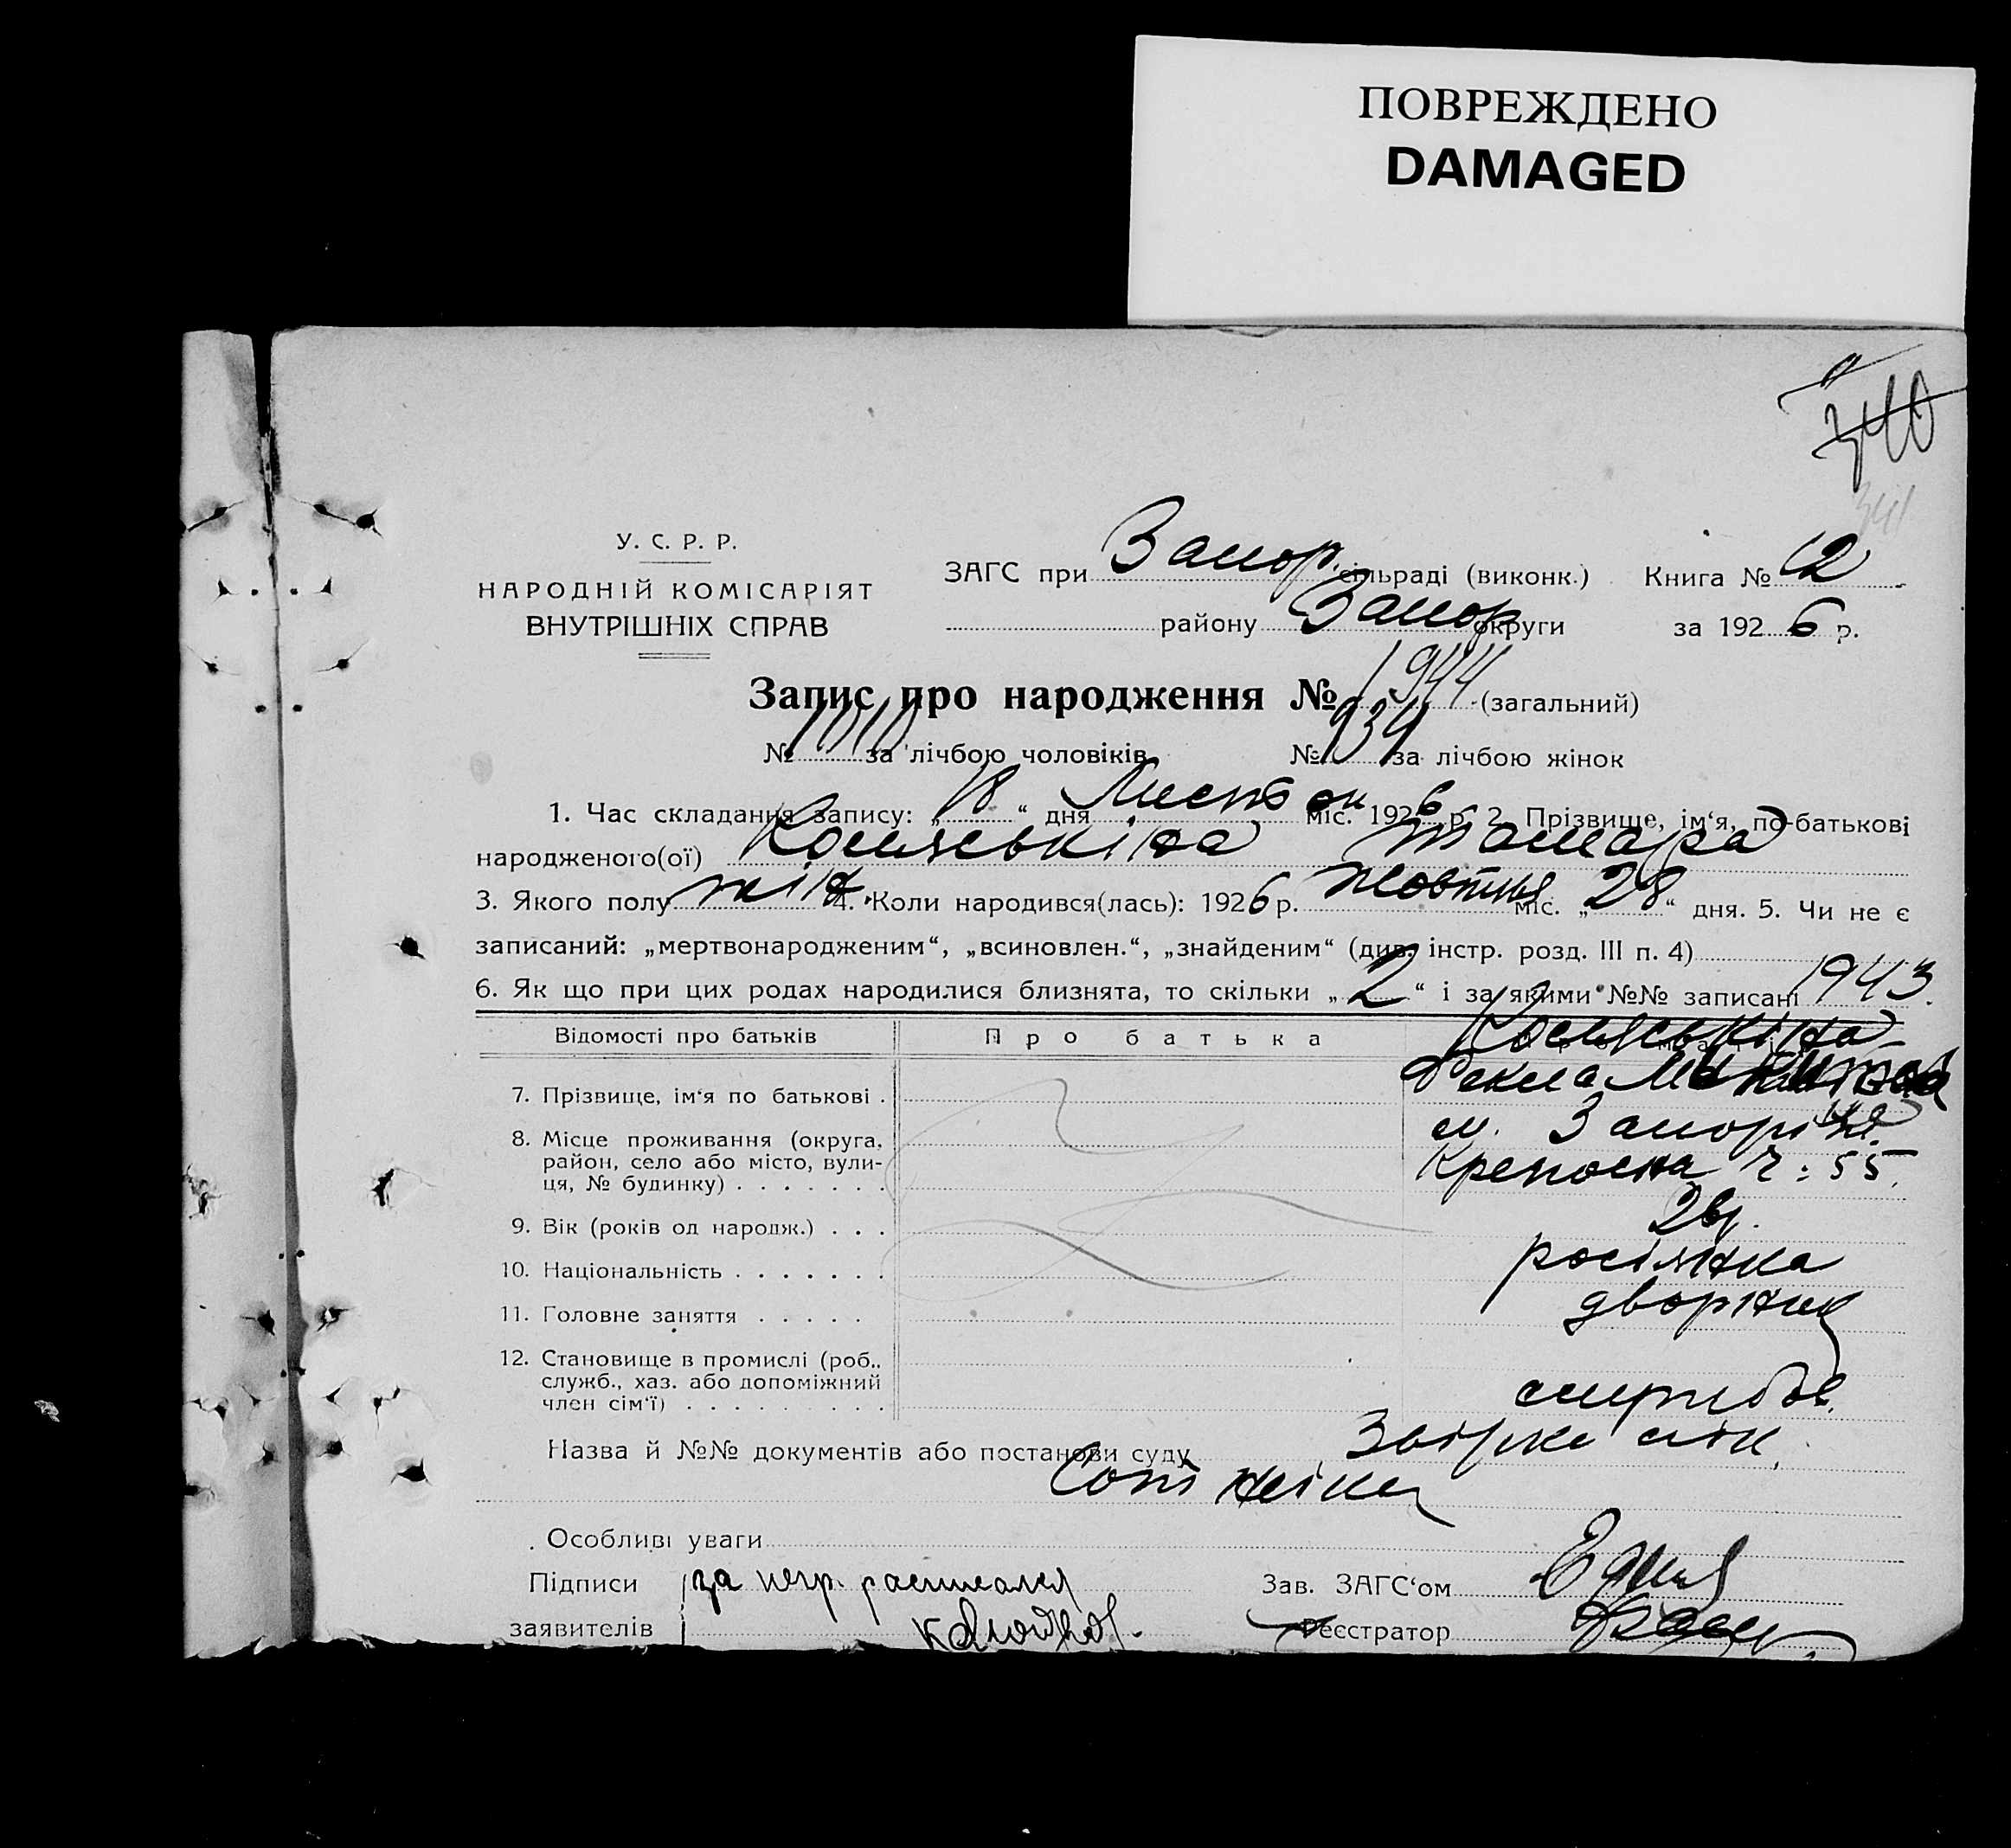 ПОВРЕЖДЕНО
DAMAGED
340
341
У. С. Р. Р.
НАРОДНІЙ КОМІСАРІЯТ
ВНУТРІШНІХ СПРАВ
ЗАГС при Запор. сільраді (виконк.) Книга № 12
району Запор округи за 1926 р.
Запис про народження № 1944 (загальний)
№ 1010 за лічбою чоловіків № 934 за лічбою жінок
1. Час складання запису: „18“ дня Листоп міс. 1926 р. 2. Прізвище, ім‘я, по-батькові
народженого(ої) Тамара
3. Якого полу жін. 4. Коли народився(лась): 1926 р. жовтня міс. „28“ дня. 5. Чи не є
записаний: „мертвонародженим“, „всиновлен.“, „знайденим“ (див. інстр. розд. III п. 4)
6. Як що при цих родах народилися близнята, то скільки „2“ і за якими №№ записані 1943.
Відомості про батьків Про батька
7. Прізвище, ім‘я по батькові . Текла
8. Місце проживання (округа, м. Запоріжя
район, село або місто, вули-
ця, № будинку) . . . . . . . ч: 55.
9. Вік (років од народж.) . . . 26р.
10. Національність . . . . . . . росіянка
11. Головне заняття . . . . . дворник
12. Становище в промислі (роб.,
служб., хаз. або допоміжний
член сім‘ї) . . . . . . . . .
Назва й №№ документів або постанови суду
Особливі уваги
Підписи за негр. росписался Зав. ЗАГС‘ом
заявителів Реєстратор